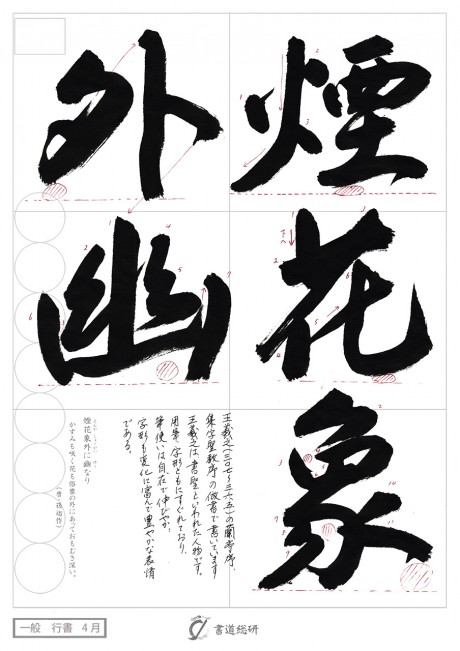 煙花象
外幽
王羲之(三〇七~三六五)の蘭亭序、
集字聖教序の倣書で書いています
王羲之は書聖といわれた人物です。
用筆、字形ともにすぐれており、
筆使いは自在で伸びやか、
字形も変化に富んで豊やかな表情
である。
煙花象外に幽なり
かすみも咲く花も俗塵の外にあっておもむき深い。
一般 行書 4月
書道総研